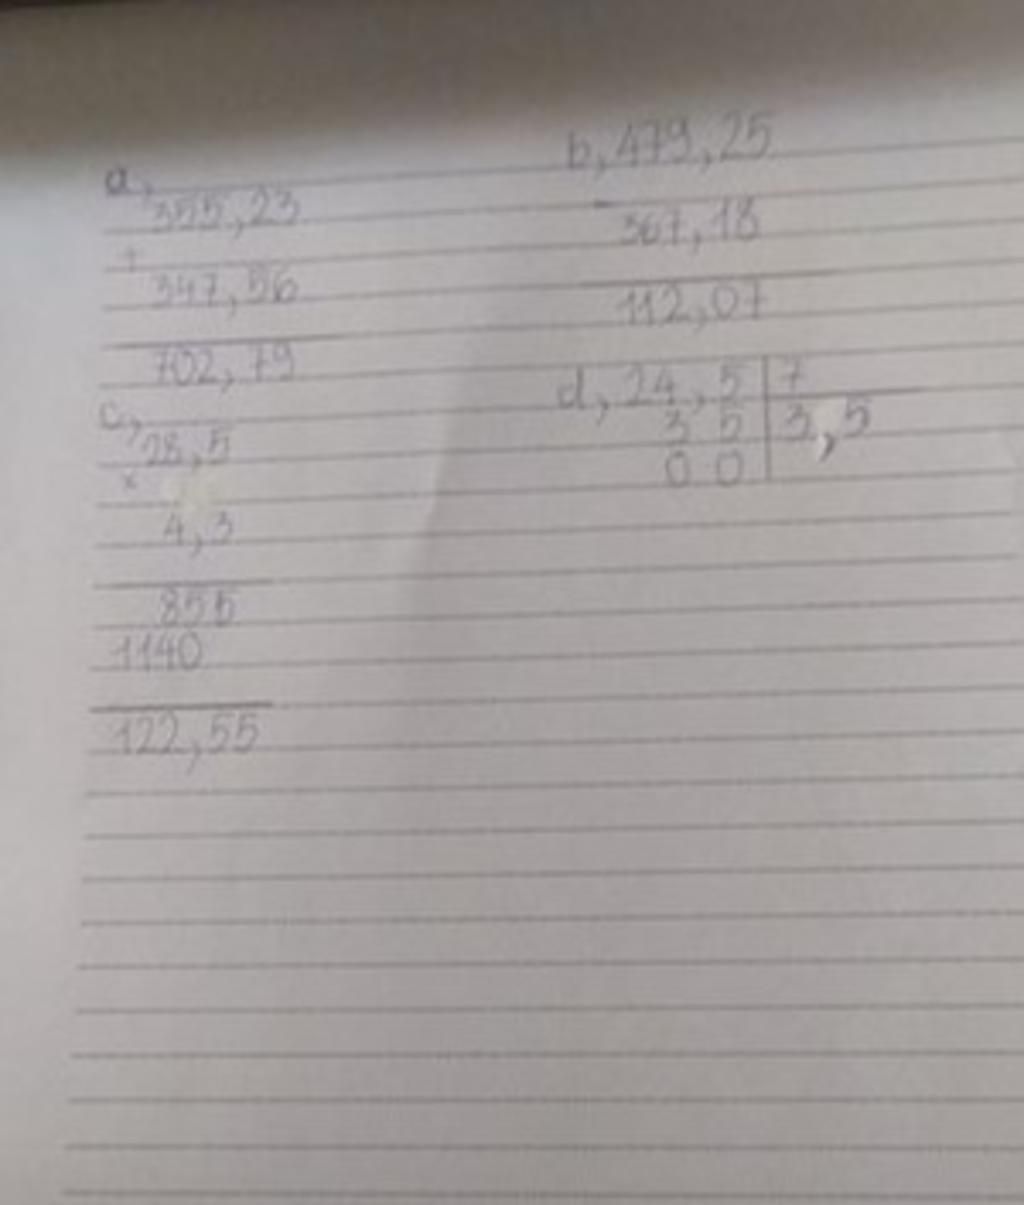 a,
355,23
+
347,56
702,79
b, 479,25
-
367,18
112,07
c,
28,5
x
4,3
855
1140
122,55
d, 24,5 7
3 5 3,5
0 0